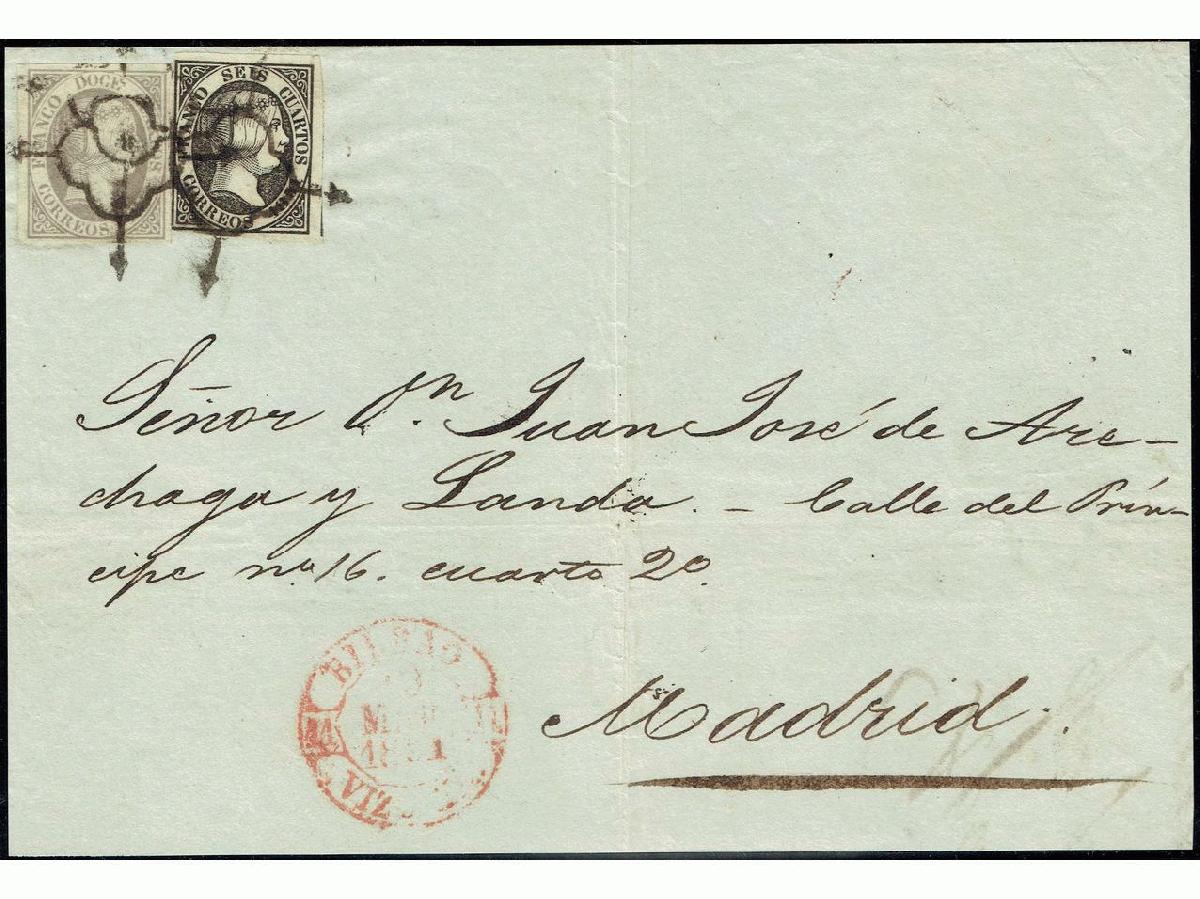 FRANCO DOCE CUARTOS
CORREOS
FRANCO SEIS CUARTOS
CORREOS 1851
Señor Dn. Juan José de Are-
chaga y Landa. - Calle del Prín-
cipe no. 16. cuarto 2o.
BILBAO
1851
VIZ
Madrid.